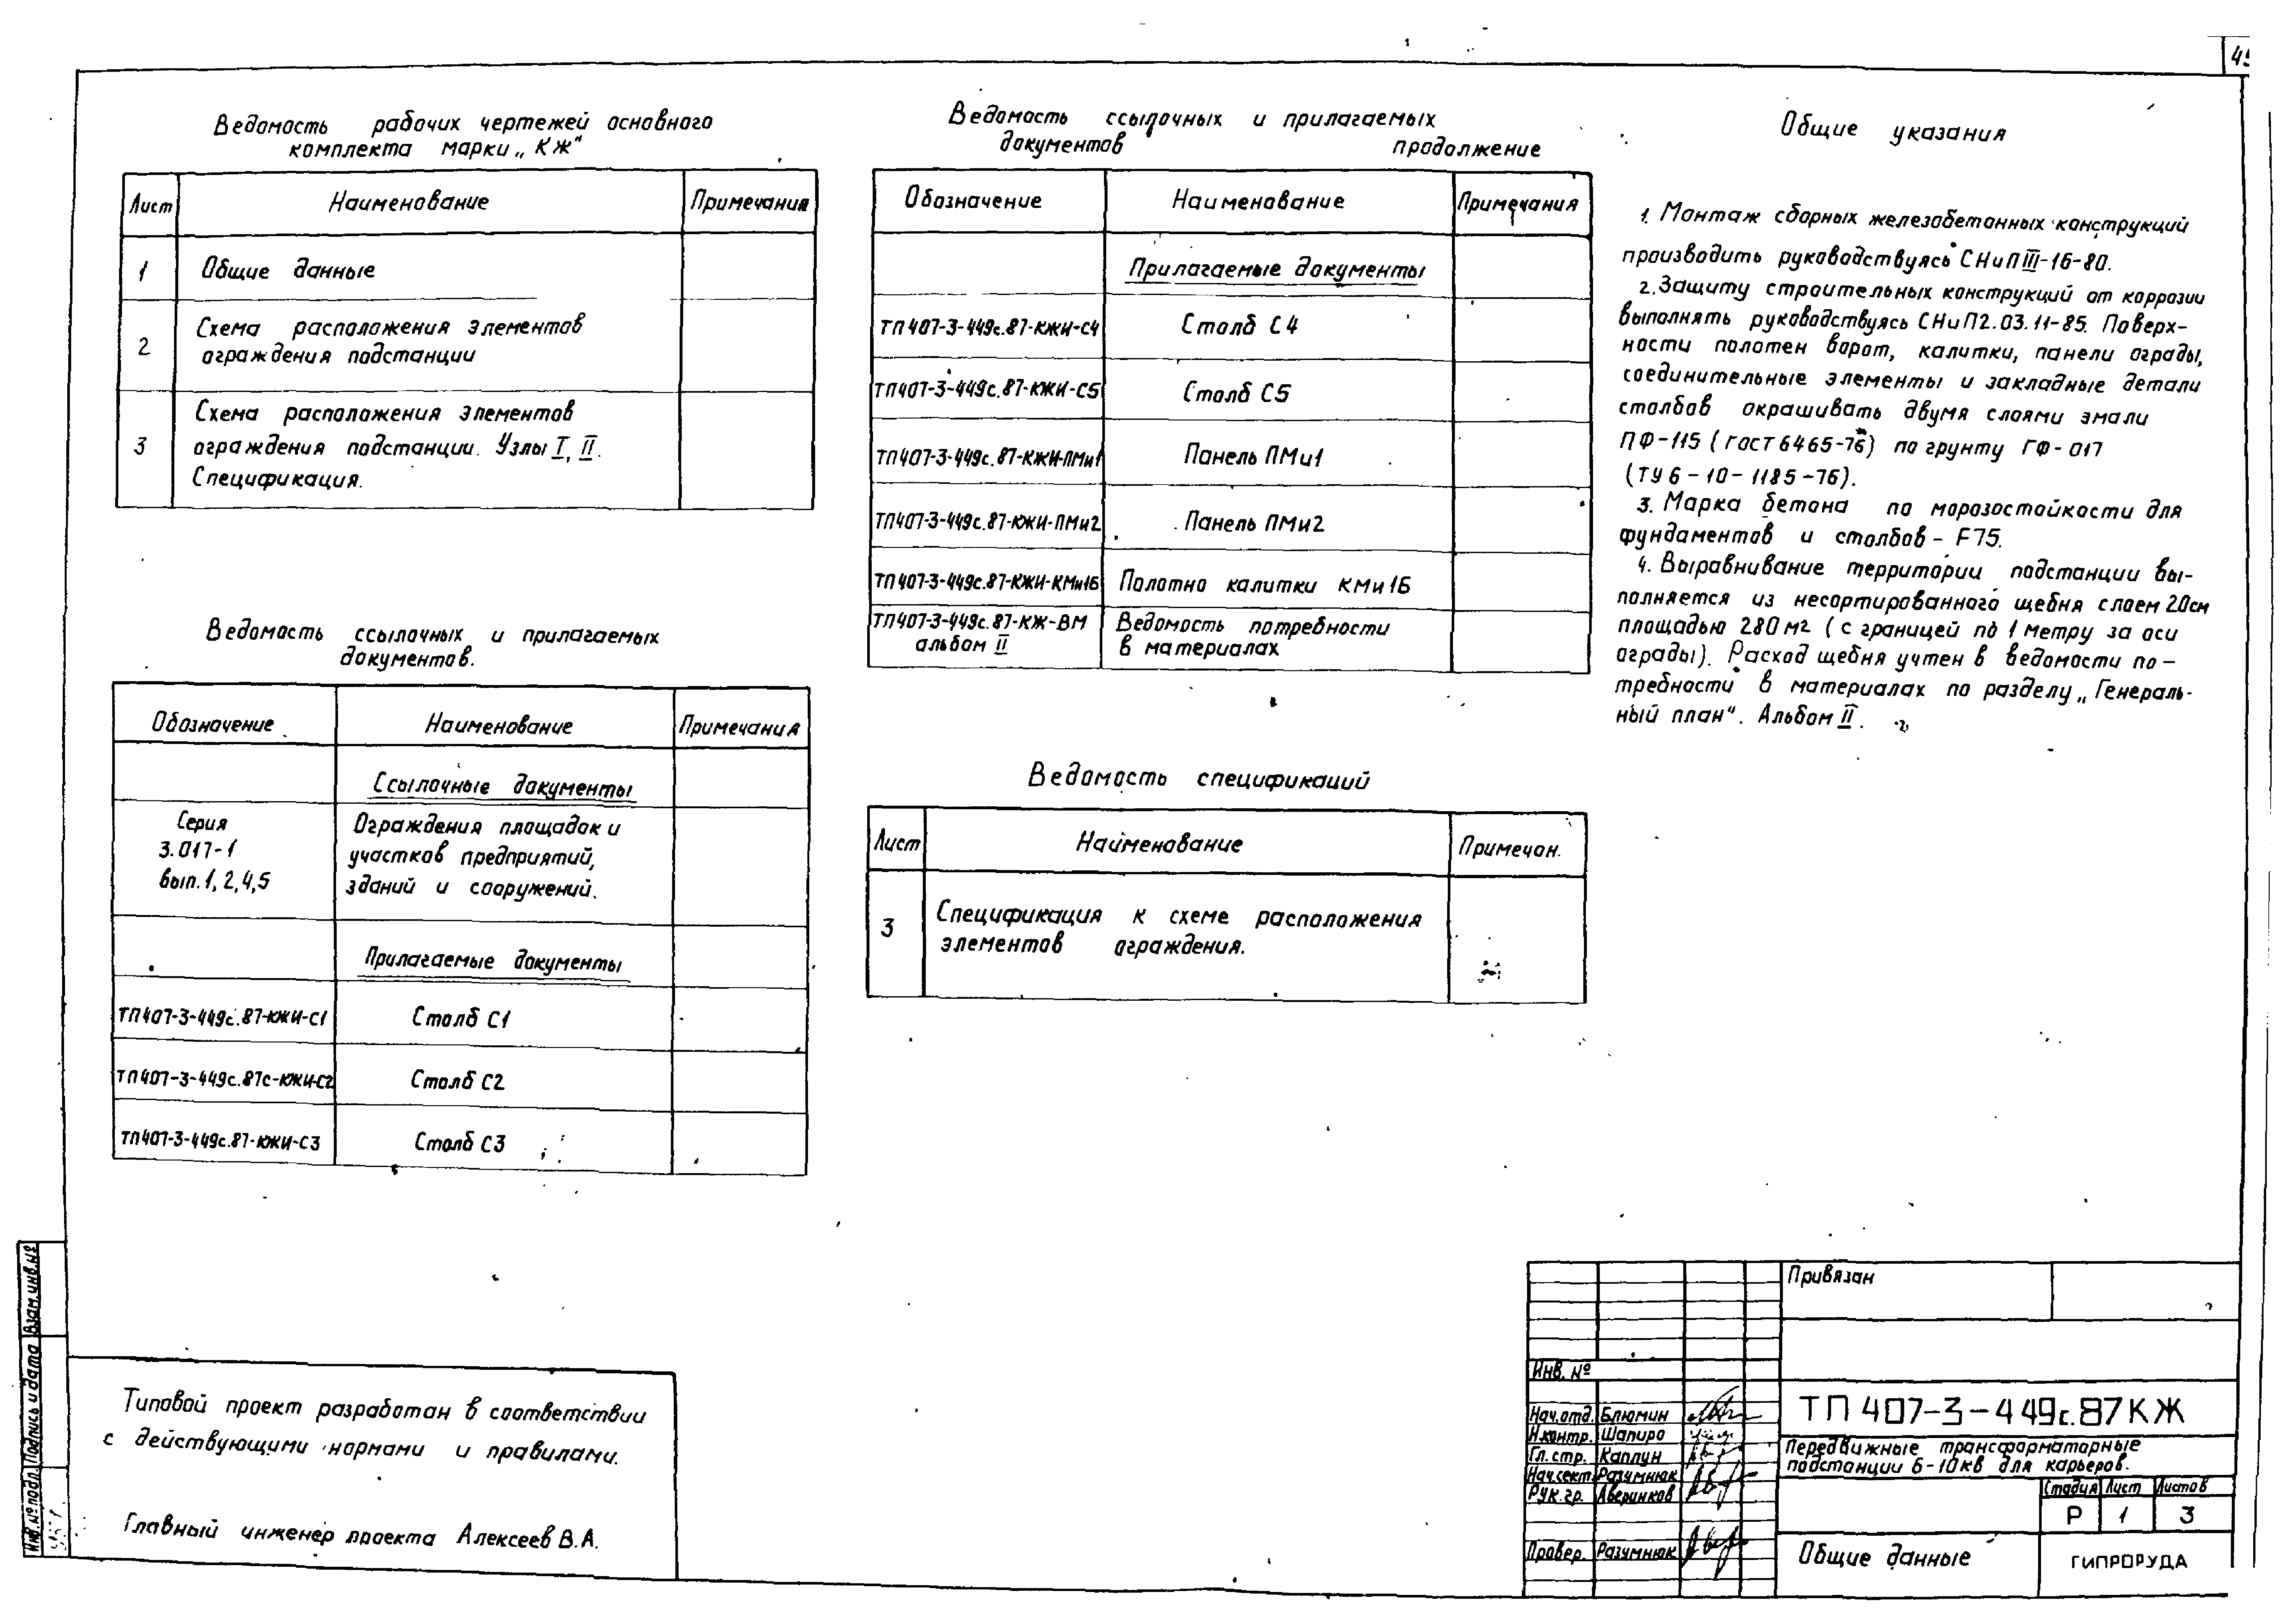 Ведомость рабочих чертежей основного
комплекта марки „КЖ"
Лист Наименование Примечания
1 Общие данные
2 Схема расположения элементов
ограждения подстанции
3 Схема расположения элементов
ограждения подстанции. Узлы I, II.
Спецификация.
Ведомость ссылочных и прилагаемых
документов.
Обозначение Наименование Примечания
Ссылочные документы
Серия
3.017-1
вып. 1, 2, 4, 5
Ограждения площадок и
участков предприятий,
зданий и сооружений.
Прилагаемые документы
ТП407-3-449с.87-КЖИ-С1 Столб С1
ТП407-3-449с.87с-КЖИ-С2 Столб С2
ТП407-3-449с.87-КЖИ-С3 Столб С3
Ведомость ссылочных и прилагаемых
документов продолжение
Обозначение Наименование Примечания
Прилагаемые документы
ТП407-3-449с.87-КЖИ-С4 Столб С4
ТП407-3-449с.87-КЖИ-С5 Столб С5
ТП407-3-449с.87-КЖИ-ПМи1 Панель ПМи1
ТП407-3-449с.87-КЖИ-ПМи2 Панель ПМи2
ТП407-3-449с.87-КЖИ-КМи1Б Полотно калитки КМи1Б
ТП407-3-449с.87-КЖ-ВМ
альбом II
Ведомость потребности
в материалах
Ведомость спецификаций
Лист Наименование Примечан.
3 Спецификация к схеме расположения
элементов ограждения.
Общие указания
1. Монтаж сборных железобетонных конструкций
производить руководствуясь СНиП III-16-80.
2. Защиту строительных конструкций от коррозии
выполнять руководствуясь СНиП 2.03.11-85. Поверх-
ности полотен ворот, калитки, панели ограды,
соединительные элементы и закладные детали
столбов окрашивать двумя слоями эмали
ПФ-115 (гост 6465-76) по грунту ГФ-017
(ТУ 6-10-1185-76).
3. Марка бетона по морозостойкости для
фундаментов и столбов - F75.
4. Выравнивание территории подстанции вы-
полняется из несортированного щебня слоем 20см
площадью 280 м2 (с границей по 1 метру за оси
ограды). Расход щебня учтен в ведомости по-
требности в материалах по разделу „Генераль-
ный план". Альбом II.
Типовой проект разработан в соответствии
с действующими нормами и правилами.
Главный инженер проекта Алексеев В.А.
Взам.инв.№
Подпись и дата
Инв.№ подл.
Привязан
Инв. №
Нач.отд. Блюмин
Н.контр. Шапиро
Гл.стр. Каплун
Нач.сект. Разумнюк
Рук.гр. Аверинков
Провер. Разумнюк
ТП 407-3-449с.87 КЖ
Передвижные трансформаторные
подстанции 6-10кв для карьеров.
Стадия Лист Листов
Р 1 3
Общие данные
ГИПРОРУДА